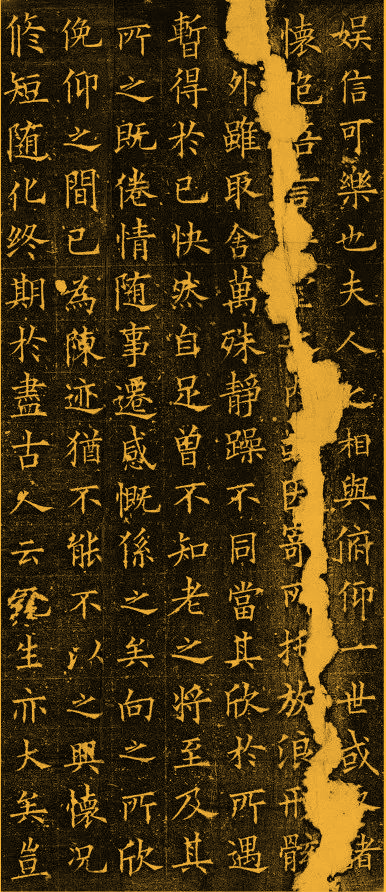 娱信可樂也夫人之相與俯仰一世或諸
懷抱言内或因寄所托放浪形骸
外雖取舍萬殊靜躁不同當其欣於所遇
暫得於己快然自足曾不知老之將至及其
所之既倦情随事遷感慨係之矣向之所欣
俛仰之間已為陳迹猶不能不以之興懷况
脩短随化终期於盡古人云生亦大矣豈